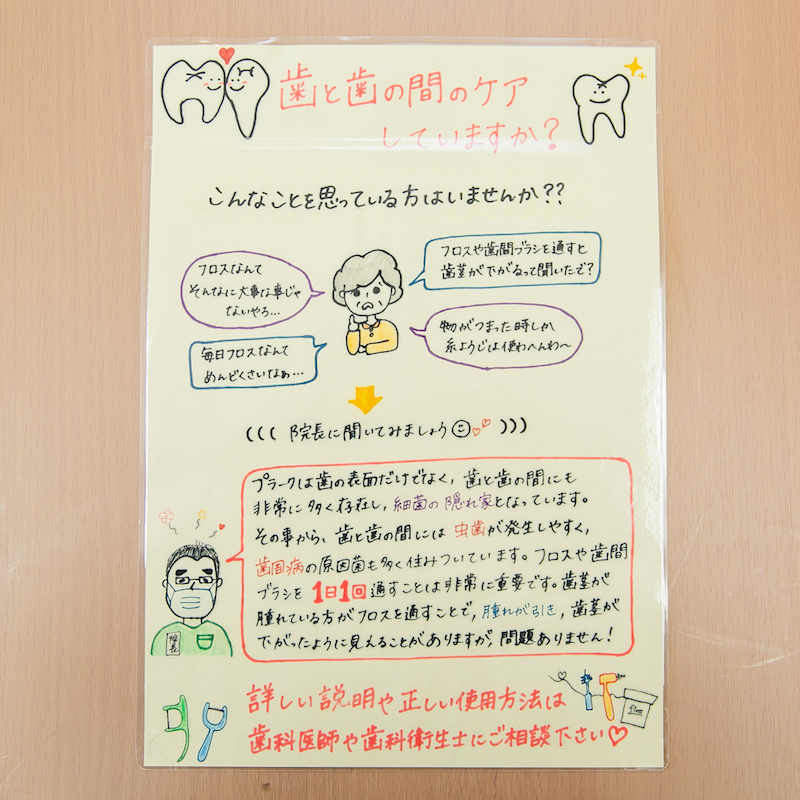 歯と歯の間のケア
していますか?
こんなことを思っている方はいませんか??
フロスなんて
そんなに大事な事じゃ
ないやろ...
フロスや歯間ブラシを通すと
歯茎が下がるって聞いたで?
毎日フロスなんて
めんどくさいなぁ...
物がつまった時しか
糸ようじは使わへんわ〜
((( 院長に聞いてみましょう )))
プラークは歯の表面だけでなく, 歯と歯の間にも
非常に多く存在し, 細菌の隠れ家となっています。
その事から, 歯と歯の間には 虫歯が発生しやすく,
歯周病の原因菌も多く住みついています。フロスや歯間
ブラシを 1日1回 通すことは非常に重要です。歯茎が
腫れている方がフロスを通すことで, 腫れが引き, 歯茎が
下がったように見えることがありますが, 問題ありません!
院長
Floss
詳しい説明や正しい使用方法は
歯科医師や歯科衛生士にご相談下さい♡